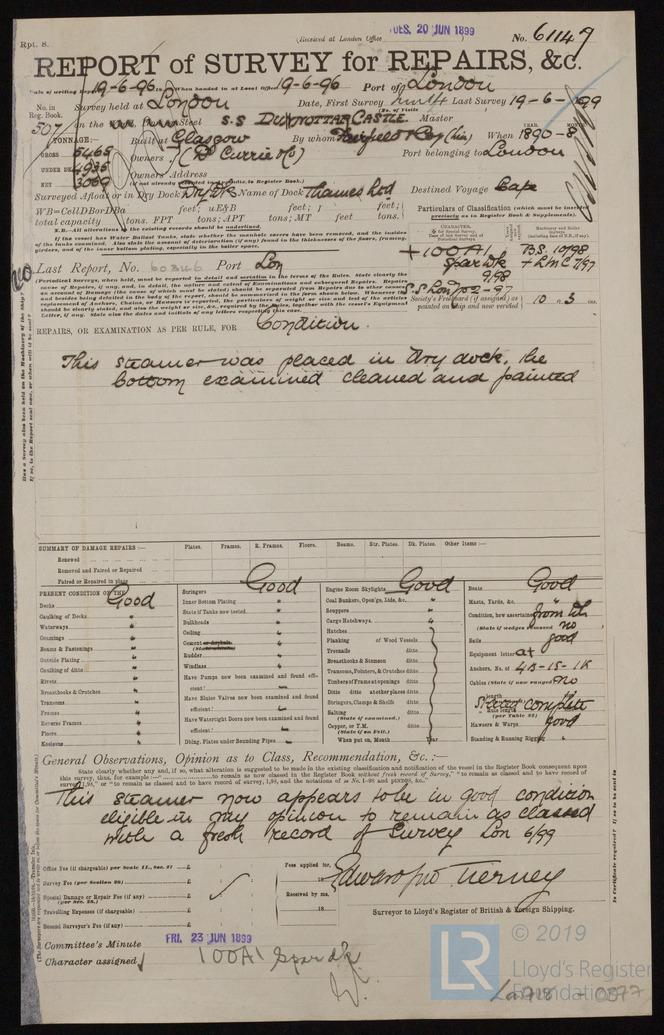 TUES. 20 JUN 1899
(Received at London Office
No. 61149
Rpt. 8.
REPORT of SURVEY for REPAIRS, &c.
Date of writing Report 19-6-96 When handed in at Local Office 19-6-96 Port of London
No. in Reg. Book. Survey held at London Date, First Survey Last Survey 19-6-1899
(No. of Visits
507 on the Steel S.S DUNOTTAR CASTLE. Master
TONNAGE:— Built at Glasgow By whom Fairfield & Coy (Lim) When 1890-8
YEAR. MONTH.
GROSS 5465 Owners (D. Currie & Co) Port belonging to London
UNDER DK 4935 Owners' Address
NET 3069 (if not already recorded in Appendix to Register Book.)
Surveyed Afloat or in Dry Dock Dry Dk Name of Dock Thames Rod Destined Voyage Cape
WB=CellDBorDBa feet; uE&B feet; f feet;
total capacity tons. FPT tons; APT tons; MT feet tons.
Particulars of Classification (which must be inserted precisely as in Register Book & Supplements).
N.B.—All alterations in the existing records should be underlined.
If the vessel has Water Ballast Tanks, state whether the manhole covers have been removed, and the insides
of the tanks examined. Also state the amount of deterioration (if any) found in the thicknesses of the floors, framing,
girders, and of the inner bottom plating, especially in the boiler space.
+100A1 BS 10/98
Spar Dk + LMC 7/97
9/98
Last Report, No. 60346 Port Lon
SS Lon No2-97
Society's Freeboard (if assigned) as painted on ship and now verified 10 3 ins.
(Periodical Surveys, when held, must be reported in detail and seriatim in the terms of the Rules. State clearly the
cause of Repairs, if any, and, in detail, the nature and extent of Examinations and subsequent Repairs. Repairs
on account of Damage (the cause of which must be stated) should be separated from Repairs due to other causes
and besides being detailed in the body of the report, should be summarised in the form shown below. Whenever the
replacement of Anchors, Chains, or Hawsers is reported, the particulars of weight or size and test of the articles
should be clearly stated, and also the weight or size, &c., required by the rules, together with the vessel's Equipment
Letter, if any. State also the dates and initials of any letters respecting this case.
REPAIRS, OR EXAMINATION AS PER RULE, FOR Condition.
This steamer was placed in dry dock, the
bottom examined cleaned and painted
SUMMARY OF DAMAGE REPAIRS:— Plates. Frames. R. Frames. Floors. Beams. Str. Plates. Dk. Plates. Other Items:—
Renewed
Removed and Faired or Repaired
Faired or Repaired in place
PRESENT CONDITION OF THE Good
Decks
Caulking of Decks "
Waterways "
Coamings "
Beams & Fastenings "
Outside Plating "
Caulking of ditto "
Rivets "
Breasthooks & Crutches "
Transoms "
Frames "
Reverse Frames "
Floors "
Keelsons "
Stringers Good
Inner Bottom Plating "
State if Tanks now tested
Bulkheads "
Ceiling "
Cement or Asphalt. "
(State which)
Rudder "
Windlass "
Have Pumps now been examined and found efficient?
Have Sluice Valves now been examined and found efficient?
Have Watertight Doors now been examined and found efficient?
Dblng. Plates under Sounding Pipes
Engine Room Skylights Good
Coal Bunkers, Open'gs, Lids, &c. "
Scuppers "
Cargo Hatchways "
Hatches "
Planking of Wood Vessels
Treenails ditto
Breasthooks & Stemson ditto
Transoms, Pointers, & Crutches ditto
Timbers of Frame at openings ditto
Ditto ditto at other places ditto
Stringers, Clamps & Shelfs ditto
Salting ditto
(State if examined.)
Copper, or Y.M. ditto
(State if on Felt.)
When put on, Month Year
Boats Good
Masts, Yards, &c. "
Condition, how ascertained from dk
(State if wedges removed) no
Sails good
Equipment letter
Anchors, No. of 4B-1S-1K
Cables (State if now ranged) no
length
Stated complete
(per Table 22)
Hawsers & Warps good
Standing & Running Rigging "
General Observations, Opinion as to Class, Recommendation, &c.:—
State clearly whether any, and if so, what alteration is suggested to be made in the existing classification and notification of the vessel in the Register Book consequent upon
This steamer now appears to be in good condition
eligible in my opinion to remain as classed
with a fresh record of Survey Lon 6/99
Office Fee (if chargeable) per Scale 11., Sec. 27 £
Survey Fee (per Section 28) £
Special Damage or Repair Fee (if any) £
(per Sec. 28.)
Travelling Expenses (if chargeable) £
Second Surveyor's Fee (if any) £
Fees applied for,
18
Received by me,
18
Edward Tierney
Surveyor to Lloyd's Register of British & Foreign Shipping.
Committee's Minute FRI. 23 JUN 1899
Character assigned 100A1 Spar dk
LR
© 2019
Lloyd's Register
Foundation